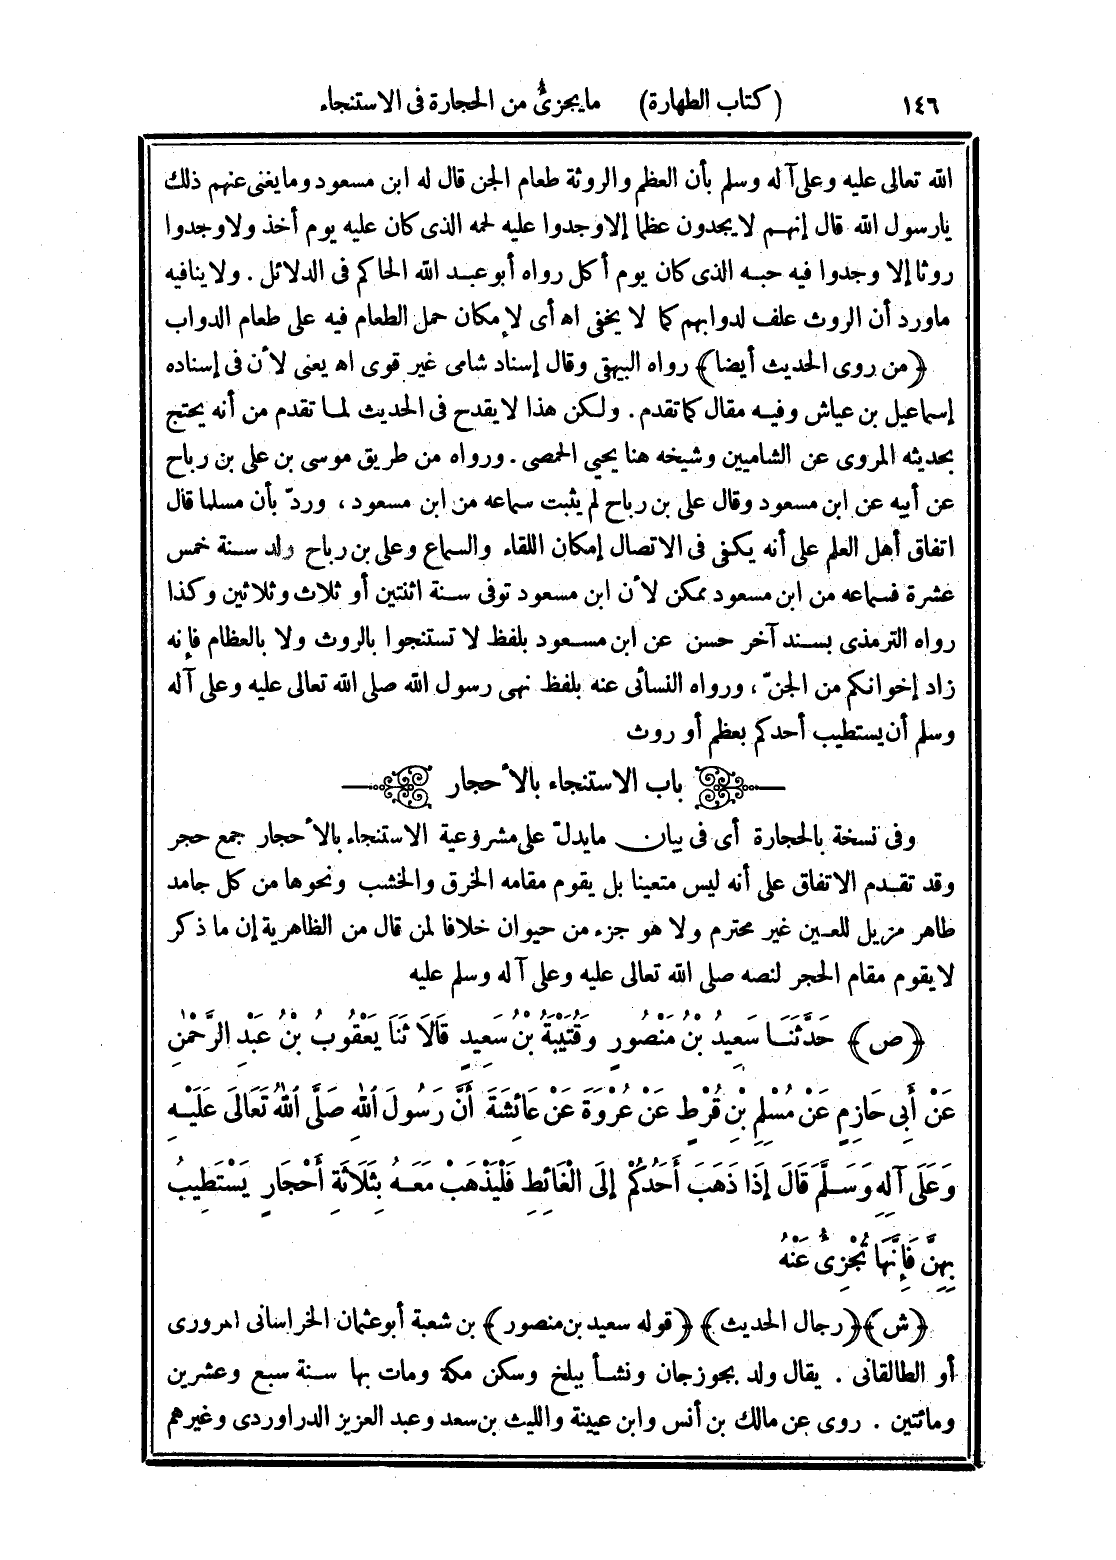 ١٤٦ (كتاب الطهارة) ما يجزئ من الحجارة فى الاستنجاء
الله تعالى عليه وعلى آله وسلم بأن العظم والروثة طعام الجن قال له ابن مسعود وما يغنى عنهم ذلك
يارسول الله قال إنهم لا يجدون عظما إلا وجدوا عليه لحمه الذى كان عليه يوم أخذ ولا وجدوا
روثا إلا وجدوا فيه حبه الذى كان يوم أكل رواه أبو عبد الله الحاكم فى الدلائل . ولا ينافيه
ماورد أن الروث علف لدوابهم كما لا يخفى اه أى لإمكان حمل الطعام فيه على طعام الدواب
﴿من روى الحديث أيضا﴾ رواه البيهقى وقال إسناد شامى غير قوى اه يعنى لأن فى إسناده
إسماعيل بن عياش وفيه مقال كما تقدم . ولكن هذا لا يقدح فى الحديث لما تقدم من أنه يحتج
بحديثه المروى عن الشاميين وشيخه هنا يحيى الحمصى . ورواه من طريق موسى بن على بن رباح
عن أبيه عن ابن مسعود وقال على بن رباح لم يثبت سماعه من ابن مسعود ، وردّ بأن مسلما قال
اتفاق أهل العلم على أنه يكفى فى الاتصال إمكان اللقاء والسماع وعلى بن رباح ولد سنة خمس
عشرة فسماعه من ابن مسعود ممكن لأن ابن مسعود توفى سنة اثنتين أو ثلاث وثلاثين وكذا
رواه الترمذى بسند آخر حسن عن ابن مسعود بلفظ لا تستنجوا بالروث ولا بالعظام فإنه
زاد إخوانكم من الجنّ ، ورواه النسائى عنه بلفظ نهى رسول الله صلى الله تعالى عليه وعلى آله
وسلم أن يستطيب أحدكم بعظم أو روث
باب الاستنجاء بالأحجار
وفى نسخة بالحجارة أى فى بيان مايدلّ على مشروعية الاستنجاء بالأحجار جمع حجر
وقد تقدم الاتفاق على أنه ليس متعينا بل يقوم مقامه الخرق والخشب ونحوها من كل جامد
طاهر مزيل للعين غير محترم ولا هو جزء من حيوان خلافا لمن قال من الظاهرية إن ما ذكر
لا يقوم مقام الحجر لنصه صلى الله تعالى عليه وعلى آله وسلم عليه
﴿ص﴾ حَدَّثَنَا سَعِيدُ بْنُ مَنْصُورٍ وَقُتَيْبَةُ بْنُ سَعِيدٍ قَالَا ثَنَا يَعْقُوبُ بْنُ عَبْدِ الرَّحْمٰنِ
عَنْ أَبِى حَازِمٍ عَنْ مُسْلِمِ بْنِ قُرْطٍ عَنْ عُرْوَةَ عَنْ عَائِشَةَ أَنَّ رَسُولَ اللهِ صَلَّى اللهُ تَعَالَى عَلَيْهِ
وَعَلَى آلِهِ وَسَلَّمَ قَالَ إِذَا ذَهَبَ أَحَدُكُمْ إِلَى الْغَائِطِ فَلْيَذْهَبْ مَعَهُ بِثَلَاثَةِ أَحْجَارٍ يَسْتَطِيبُ
بِهِنَّ فَإِنَّهَا تُجْزِئُ عَنْهُ
﴿ش﴾ ﴿رجال الحديث﴾ ﴿قوله سعيد بن منصور﴾ بن شعبة أبو عثمان الخراسانى المروزى
أو الطالقانى . يقال ولد بجوزجان ونشأ ببلخ وسكن مكة ومات بها سنة سبع وعشرين
ومائتين . روى عن مالك بن أنس وابن عيينة والليث بن سعد وعبد العزيز الدراوردى وغيرهم